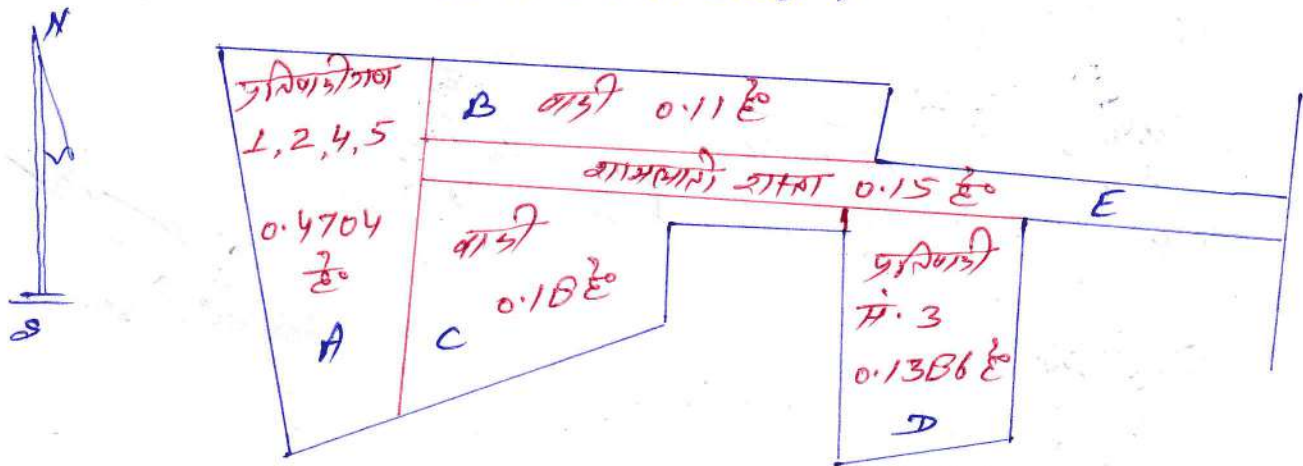 N
S
प्रतिवादीगण
1, 2, 4, 5
0.4704
हे०
A
B वादी 0.11 हे०
शामलाती रास्ता 0.15 हे०
E
वादी
0.18 हे०
C
प्रतिवादी
सं. 3
0.1386 हे०
D